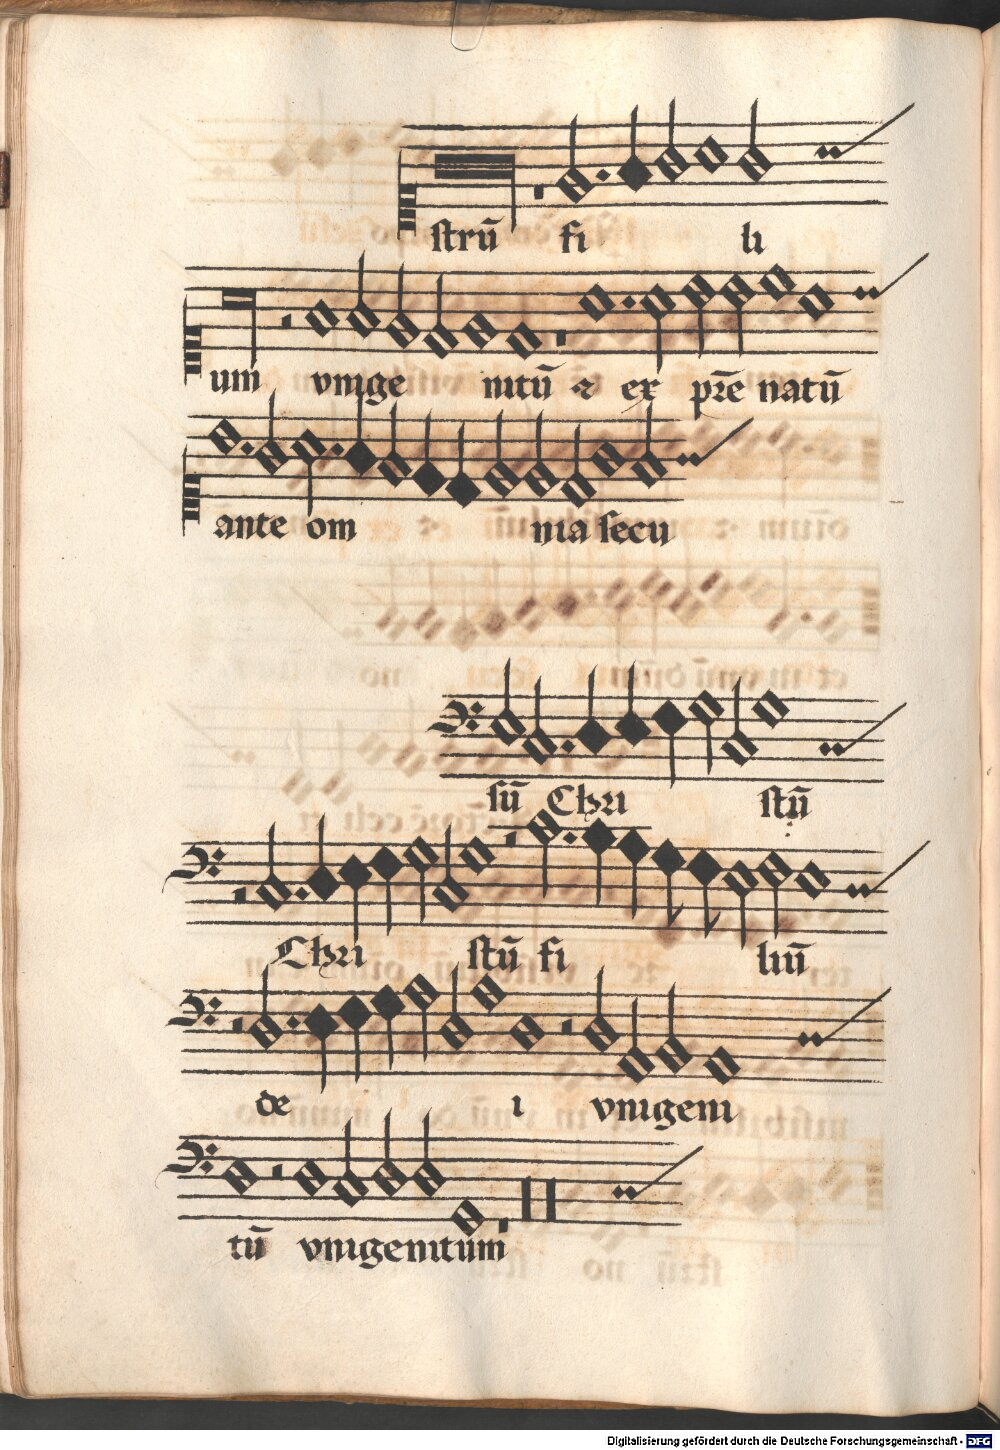 strū fi li
um vnige nitū ⁊ ex pr̄e natū
ante om nia secu
sū Chri stū
Chri stū fi liū
de i vnigeni
tū vnigenitum
Digitalisierung gefördert durch die Deutsche Forschungsgemeinschaft - DFG